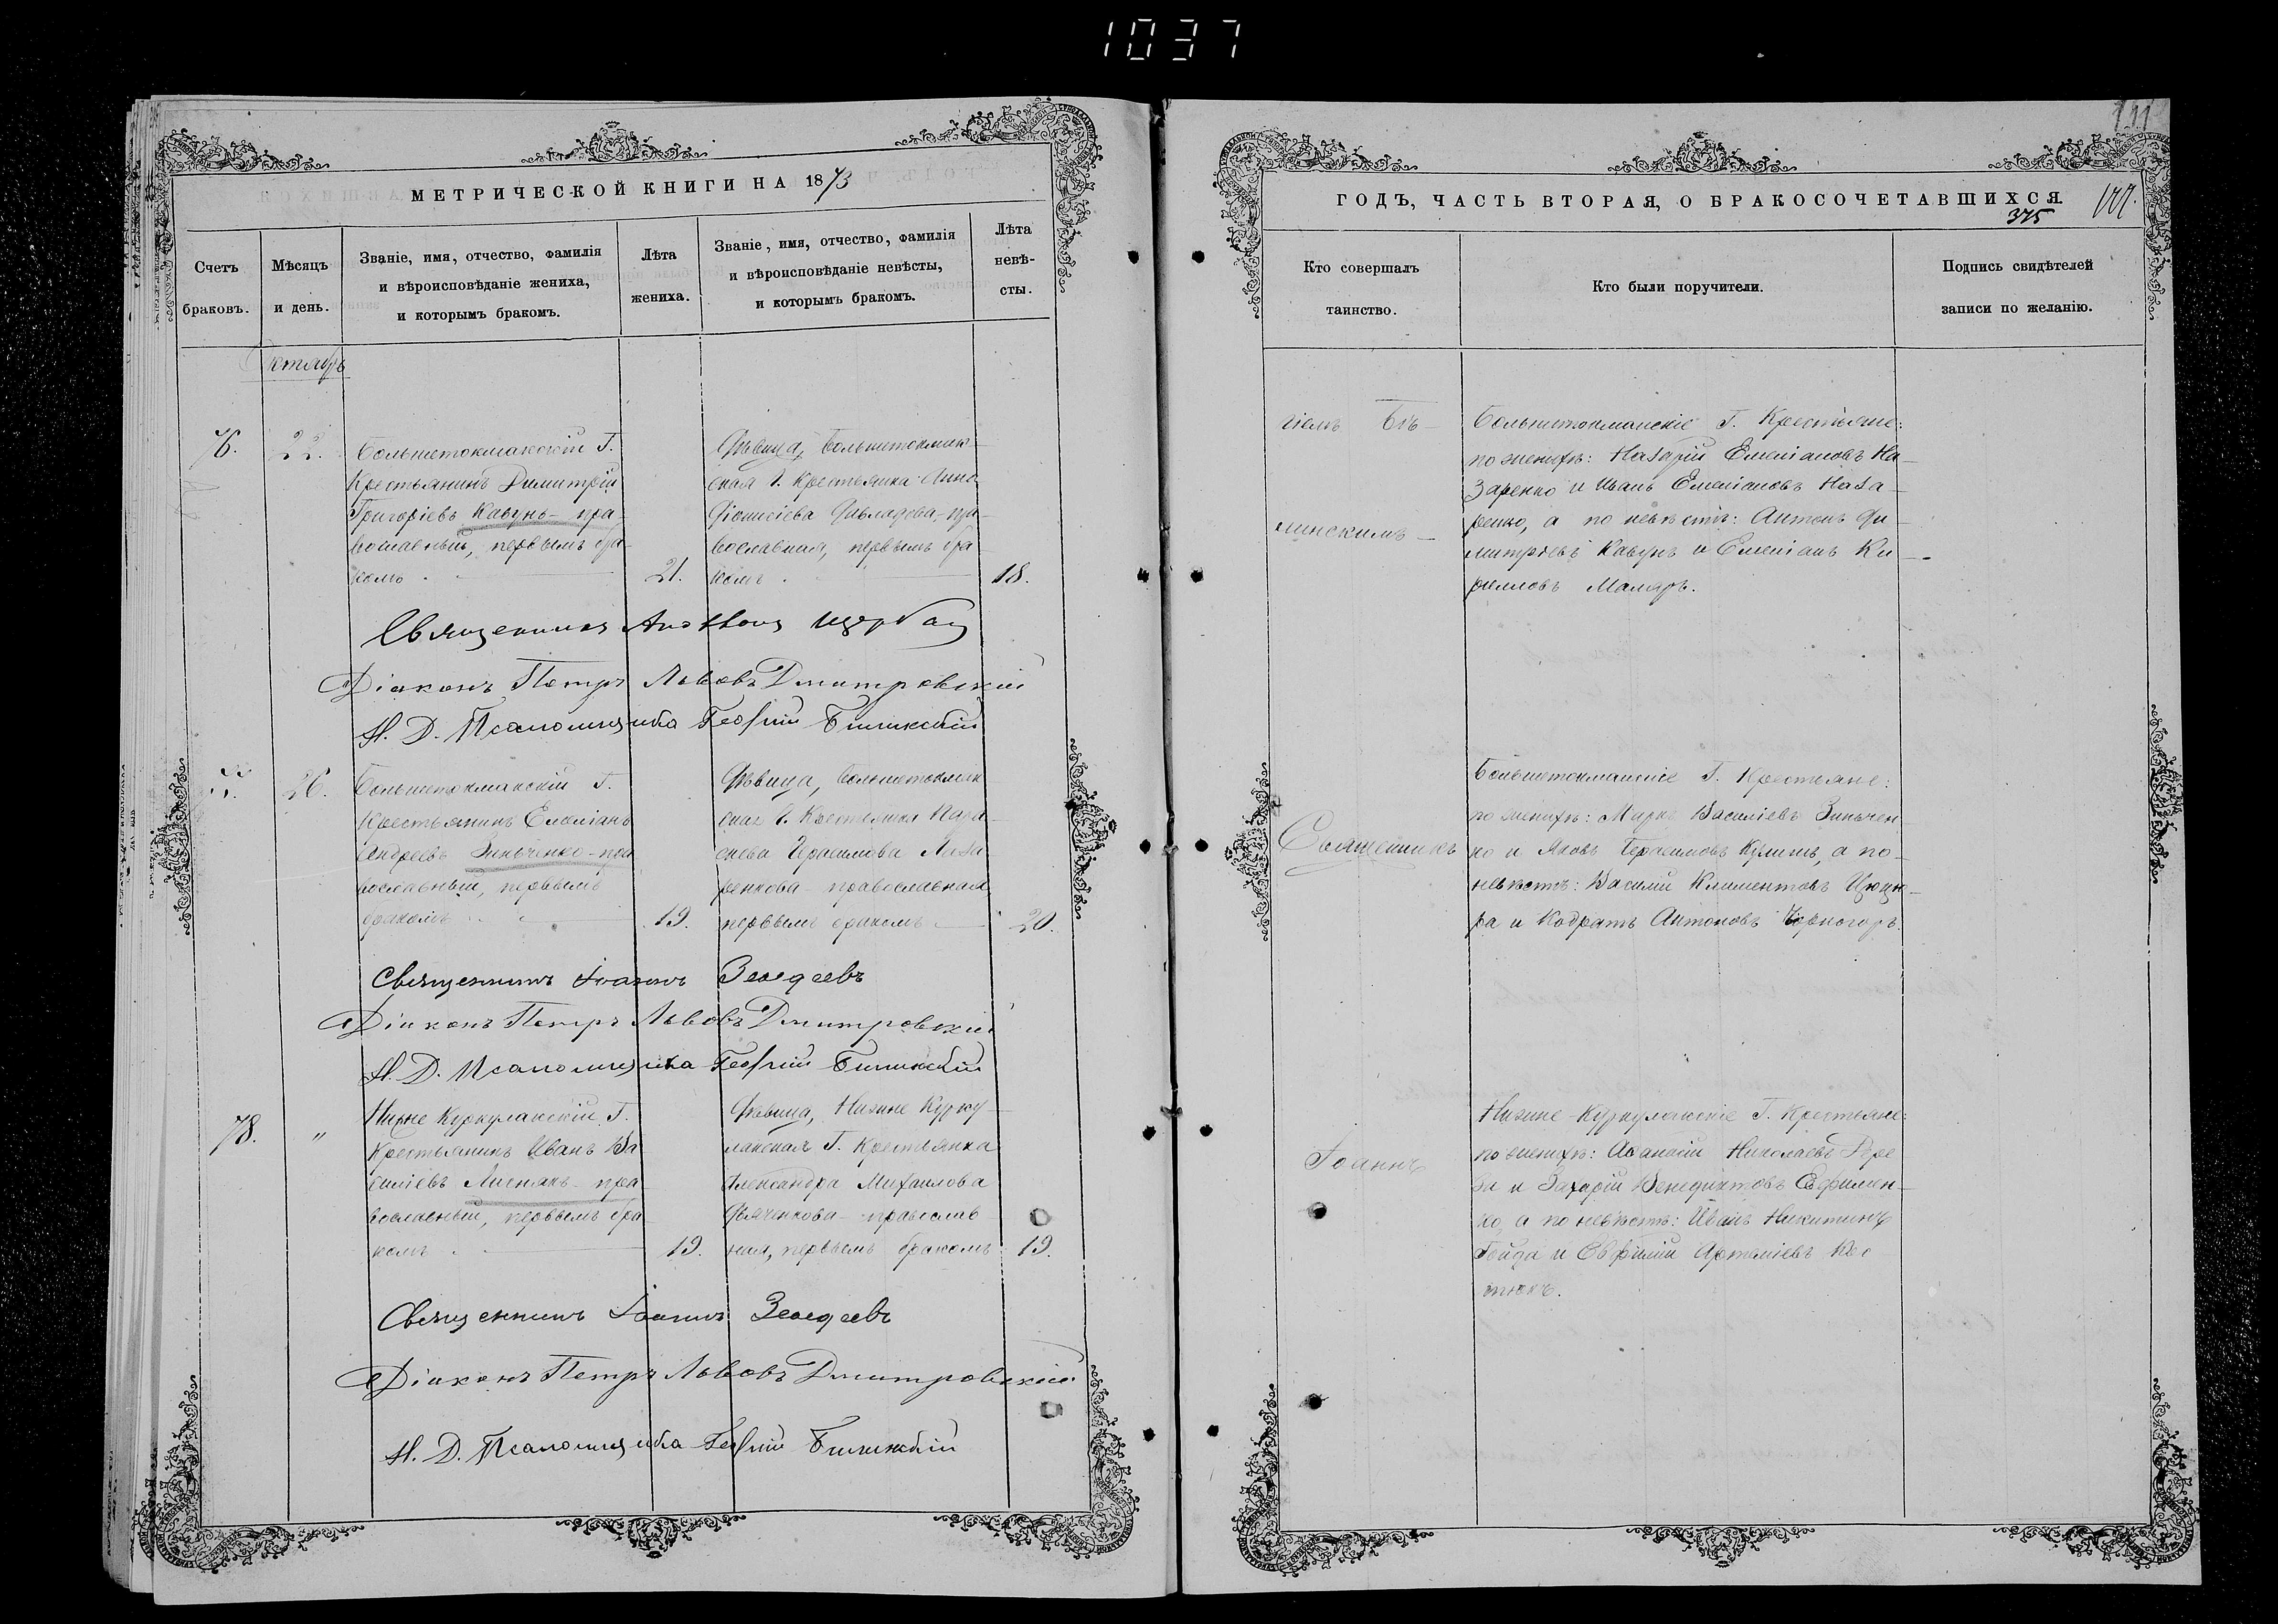 1037
МЕТРИЧЕСКОЙ КНИГИ НА 1873
Счетъ браковъ.
Мѣсяцъ и день.
Званіе, имя, отчество, фамилія
и вѣроисповѣданіе жениха,
и которымъ бракомъ.
Лѣта жениха.
Званіе, имя, отчество, фамилія
и вѣроисповѣданіе невѣсты,
и которымъ бракомъ.
Лѣта невѣ-
сты.
Октябрь
76.
22.
Большетокмакскій Г.
Крестьянинъ Димитрій
Григоріевъ Кавунъ - пра-
вославный, первымъ бра-
комъ.
21.
Дѣвица, Большетокмак-
ская Г. Крестьянка Анна
Діонисіева
вославная, первымъ бра-
комъ.
18.
Священникъ
Діаконъ Петръ Львовъ Дмитровскій
И. Д. Псаломщика Георгій
26.
Большетокмакскій Г.
Крестьянинъ Емеліанъ
Андреевъ Зинченко - пра
вославный, первымъ
бракомъ
19.
Дѣвица, Большетокмак
ская Г. Крестьянка Пара-
скева Герасимова Наза-
ренкова православная
первымъ бракомъ
20.
Священникъ Іоаннъ
Діаконъ Петръ Львовъ Дмитровскій
И. Д. Псаломщика Георгій
78.
"
Нижне Куркулакскій Г.
Крестьянинъ Иванъ Ва
силіевъ Лиснякъ - пра-
вославный, первымъ бра
комъ
19.
Дѣвица, Нижне Курку-
лакская Г. Крестьянка
Александра Михаилова
Дьяченкова - православ
ная, первымъ бракомъ
19.
Священникъ Іоаннъ
Діаконъ Петръ Львовъ Дмитровскій
И. Д. Псаломщика Георгій
ГОДЪ, ЧАСТЬ ВТОРАЯ, О БРАКОСОЧЕТАВШИХСЯ.
375
Кто совершалъ
таинство.
Кто были поручители.
Подпись свидѣтелей
записи по желанію.
гіемъ Бѣ-
линскимъ
Большетокмакскіе Г. Крестьяне:
по женихѣ: Назарій Емеліановъ На-
заренко и Иванъ Емеліановъ Наза-
ренко, а по невѣстѣ: Антонъ Ди-
митріевъ Кавунъ и Емеліанъ Ки-
рилловъ Маляръ.
Священникъ
Большетокмакскіе Г. Крестьяне:
по женихѣ: Маркъ Василіевъ Зинчен
ко и Яковъ Герасимовъ Кулишъ, а по-
невѣстѣ: Василій Климентовъ Цюцю-
ра и Кодратъ Антоновъ Чорногоръ.
Іоаннъ
Нижне-Куркулакскіе Г. Крестьяне:
по женихѣ: Аѳанасій Николаевъ Дере
за и Захарій Венедиктовъ Ефимен-
ко, а по невѣстѣ: Иванъ Никитинъ
Гойда и Евфимій Артеміевъ Кос
тюкъ.